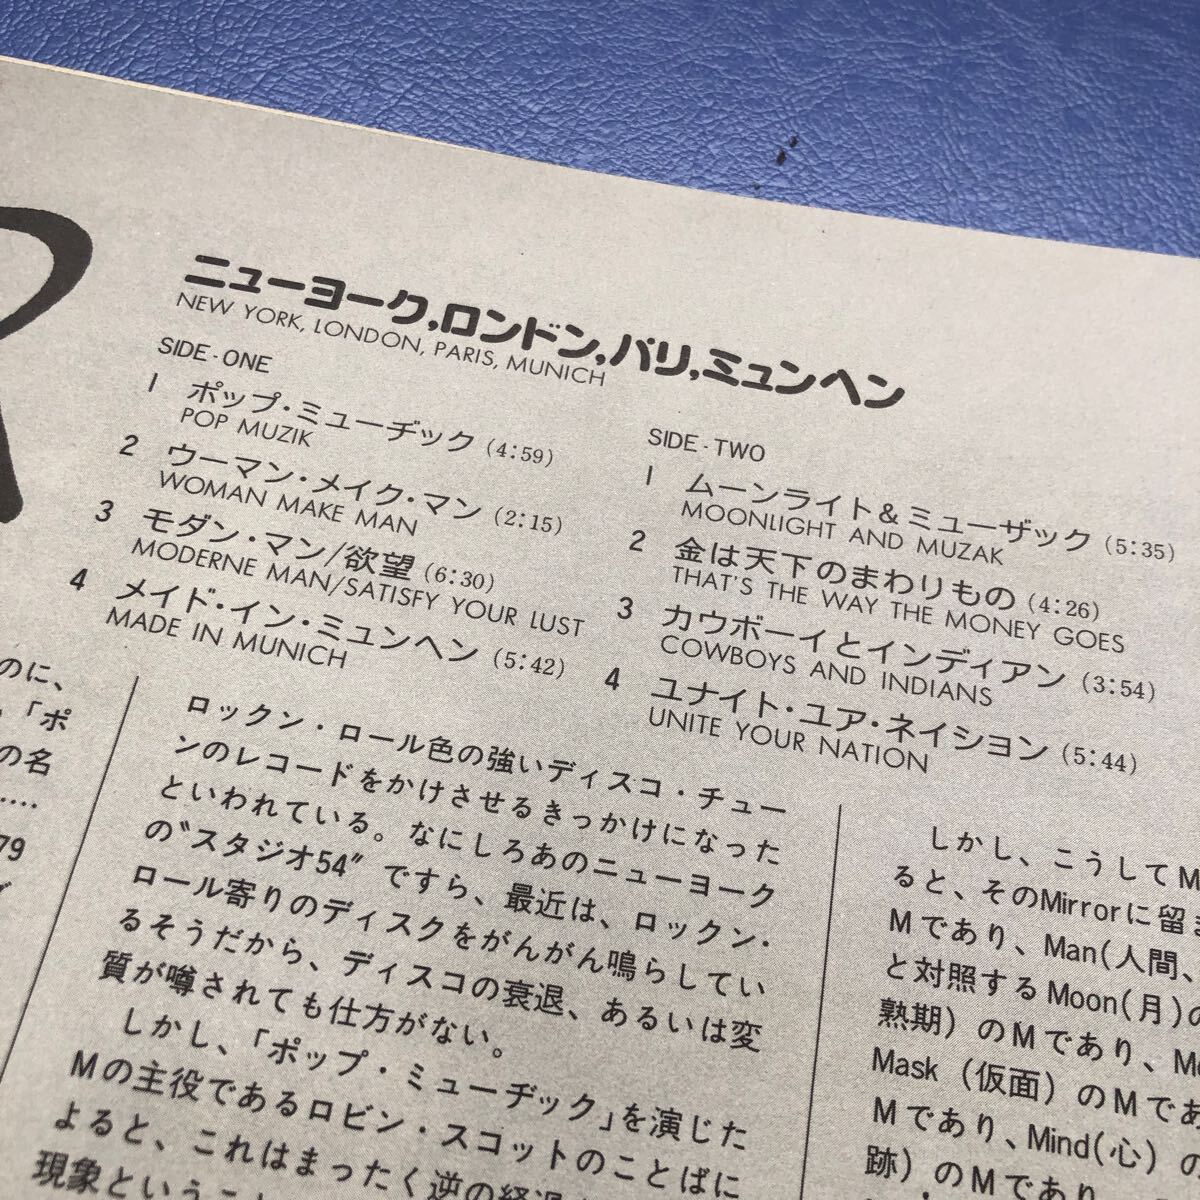 ニューヨーク,ロンドン,パリ,ミュンヘン
NEW YORK, LONDON, PARIS, MUNICH
SIDE-ONE
1 ポップ・ミューヂック (4:59)
POP MUZIK
2 ウーマン・メイク・マン (2:15)
WOMAN MAKE MAN
3 モダン・マン/欲望 (6:30)
MODERNE MAN/SATISFY YOUR LUST
4 メイド・イン・ミュンヘン (5:42)
MADE IN MUNICH
SIDE-TWO
1 ムーンライト&ミューザック (5:35)
MOONLIGHT AND MUZAK
2 金は天下のまわりもの (4:26)
THAT'S THE WAY THE MONEY GOES
3 カウボーイとインディアン (3:54)
COWBOYS AND INDIANS
4 ユナイト・ユア・ネイション (5:44)
UNITE YOUR NATION
のに、
「ポ
の名
……
79
ロックン・ロール色の強いディスコ・チュー
ンのレコードをかけさせるきっかけになった
といわれている。なにしろあのニューヨーク
の〝スタジオ54〟ですら、最近は、ロックン・
ロール寄りのディスクをがんがん鳴らしてい
るそうだから、ディスコの衰退、あるいは変
質が噂されても仕方がない。
しかし、「ポップ・ミューヂック」を演じた
Mの主役であるロビン・スコットのことばに
よると、これはまったく逆の経過
現象というこ
しかし、こうしてM
ると、そのMirrorに留ま
Mであり、Man(人間、
と対照するMoon(月)の
熟期)のMであり、Mo
Mask (仮面) のMであ
Mであり、Mind(心)の
跡)のMであり